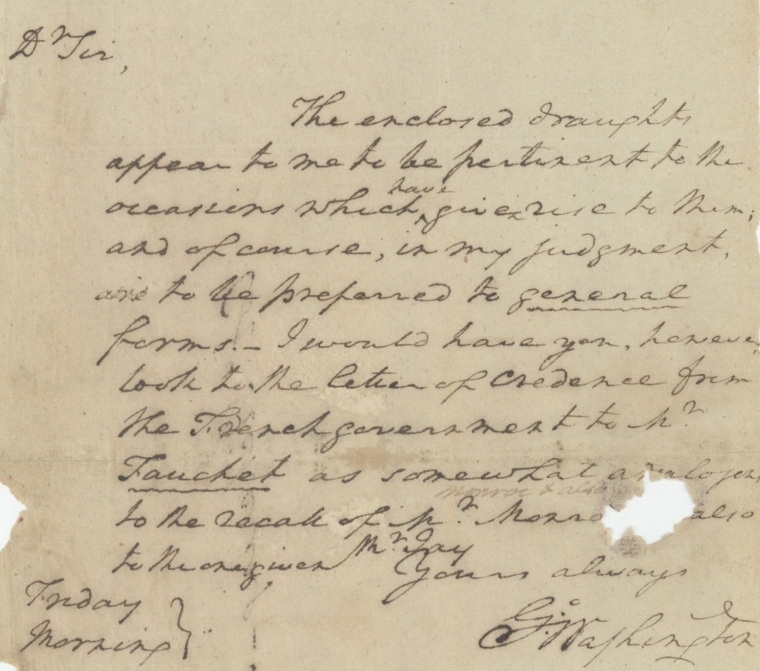 Dr Sir,
The enclosed draughts
appear to me to be pertinent to the
occasions which have given rise to them;
and of course, in my judgment,
are to be preferred to general
forms.— I would have you, however,
look to the letter of credence from
the French government to Mr
Fauchet as somewhat analogous
to the recall of Mr Monro also
to the one given Mr Jay
Yours always
Go: Washington
Friday
Morning